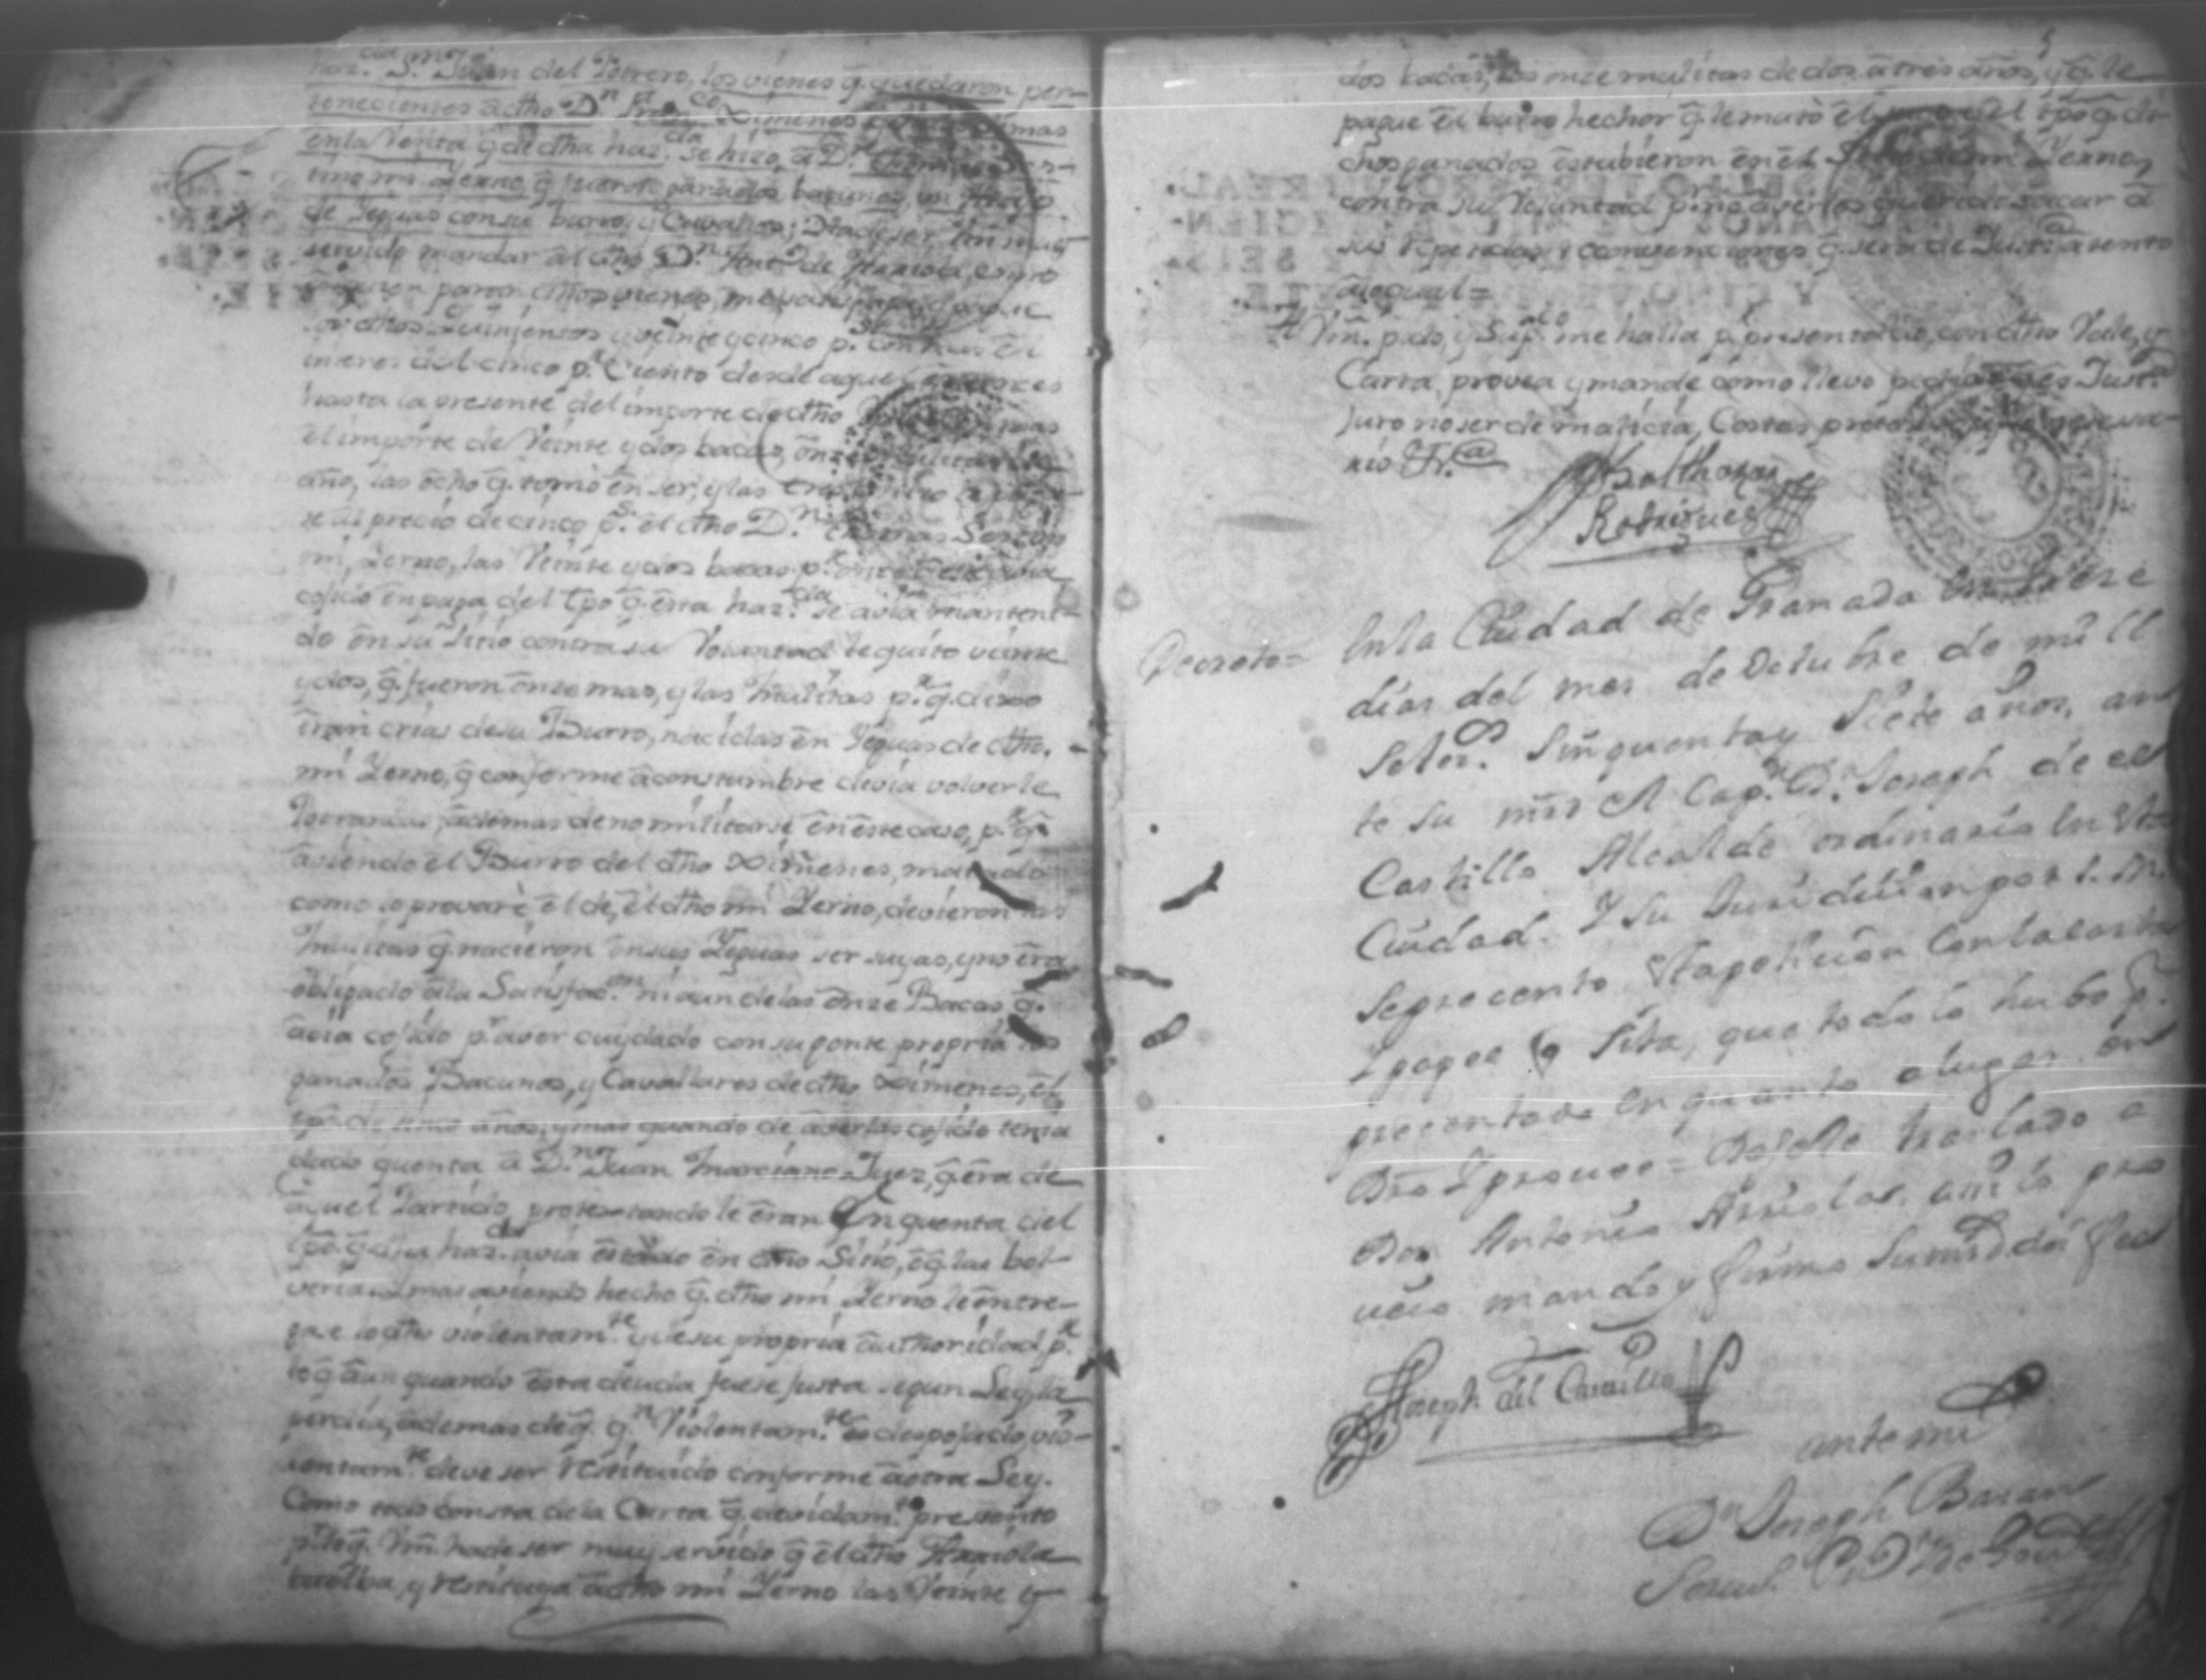 haz.da S.n Juan del Potrero, los vienes q̃. quedaron per-
tenecientes a dho D.n Fran.co Ximenes
en la Venta q̃ de dha haz.da se hizo, a D.n
tino mi Yerno, q̃ fueron ganados bacunos, un
de Yeguas con su burro, y Cavallos; Ha de ser Vm̃ muy
servido mandar al dho D.n Ant.o de Arriola, como
paran dhos vienes, me
dhos quinientos y veinte y cinco p.s con mas el
interes del cinco p.r Ciento desde aquel entonces
hasta la presente del importe de dho
el importe de Veinte y dos bacas, onze
año, las ocho q̃. tomó en ser, y las tres
se al precio de cinco p.s el dho D.n
mi Yerno, las Veinte y dos bacas p.r
cojido en paga del tpo q̃. esta haz.da se avia manteni-
do en su sitio contra su Voluntad le quitó veinte
y dos, q̃. fueron onze mas, y las mulitas p.r q̃. dixo
eran crias de su Burro, nacidas en Yeguas de dho.
mi Yerno, q̃ conforme a constumbre devia volverle
ademas de no militarse en este caso, p.r q̃
aviendo el Burro del dho Ximenes, matado
como lo provaré el de, el dho mi Yerno, devieron las
mulitas q̃. nacieron en sus Yeguas ser suyas, y no era
obligado a la Satisfac.n ni aun de las onze Bacas q̃.
avia cojido p.r aver cuydado con su gente propria los
ganados Bacunos, y Cavallares de dho Ximenes, el
tpo de años, y mas quando de averlas cojido tenia
dado quenta a D.n Juan Marciano Juez, q̃ era de
aquel Partido, protextando le eran en quenta del
tpo q̃ dha haz.da avia estado en dho Sitio, o q̃. las bol-
veria. Y mas aviendo hecho q̃. dho mi Yerno le entre-
gase lo dho violentam.te y de su propria authoridad p.r
lo q̃ aun quando esta deuda fuese justa segun Ley, la
perdia, ademas de q̃. q.n Violentam.te es despojado, vio-
lentam.te deve ser restituido conforme a otra Ley.
Como todo consta de la Carta q̃. devidam.te presento
p.r lo q̃. Vm̃. ha de ser muy servido q̃ el dho Arriola
buelba, y restituya a dho mi Yerno las Veinte y
5
dos bacas, las onze mulitas de dos a tres años, y q̃. le
pague el burro hechor q̃. le mató el el tpo q̃. di-
chos ganados estubieron en el Sitio de mi Yerno,
contra su Voluntad p.r no averlos querido sacar a
sus repetidas reconvenciones q̃. sera de Just.a a tento
a lo qual =
A Vm̃. pido, y Sup.co me halla p.r presentado, con dho Vale, y
Carta, provea y mande como llevo pedido q̃ es Just.a
Juro no ser de malicia, Costas protesto y en lo neseea-
rio Et.a
Balthazar
Rodriguez
Decreto =
En la Ciudad de Granada en trese
dias del mes de Octubre de mill
Setes.os Sinquenta y Siete años, an
te su mrd el Cap.n D.n Joseph de el
Castillo Alcalde ordinario en esta
Ciudad. Y su Jurisdicion por S. M.
Se presento Esta peticion Con la carta
Y papel q̃ Sita, que todo lo hubo p.r
presentado en quanto a lugar en
Dro Y proveo = Desele traslado a
Don Antonio Arriola. asi lo pro
veio mando y firmo Su mrd. doi fee
Joseph del Castillo
ante mi
D.n Joseph